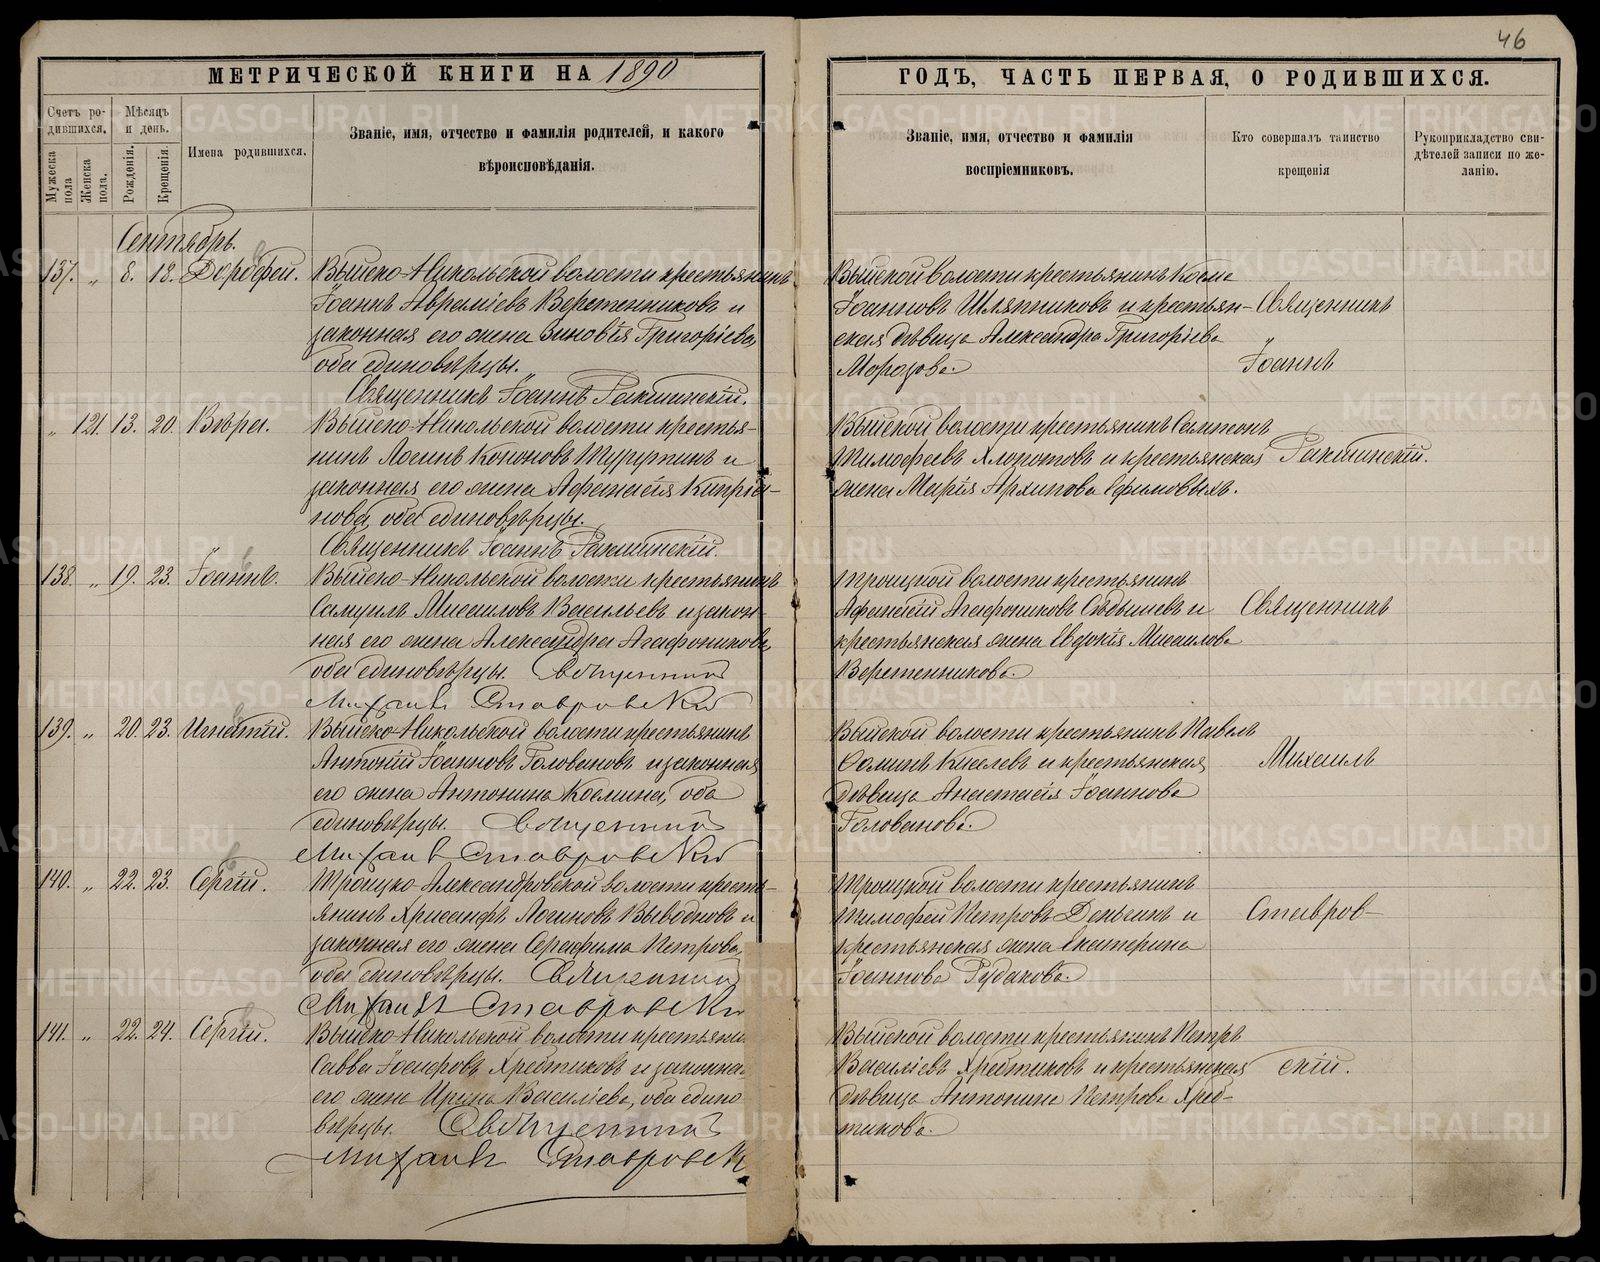 46
МЕТРИЧЕСКОЙ КНИГИ НА 1890
ГОДЪ, ЧАСТЬ ПЕРВАЯ, О РОДИВШИХСЯ.
Счетъ ро-
дившихся.
Мужеска
пола
Женска
пола.
Мѣсяцъ
и день.
Рожденія.
Крещенія.
Имена родившихся.
Званіе, имя, отчество и фамилія родителей, и какого
вѣроисповѣданія.
Званіе, имя, отчество и фамилія
воспріемниковъ.
Кто совершалъ таинство
крещенія
Рукоприкладство сви-
дѣтелей записи по же-
ланію.
Сентябрь.
137. „ 8. 18. Дорофей. Выйско-Никольской волости крестьянинъ
Іоаннъ Авраміевъ Веретенниковъ и
законная его жена Зиновія Григоріева,
оба единовѣрцы.
Священникъ Іоаннъ Ракшинскій.
Выйской волости крестьянинъ Косма
Іоанновъ Шляпниковъ и крестьян-
ская дѣвица Александра Григоріева
Морозова.
Священникъ
Іоаннъ
„ 121. 13. 20. Вѣра. Выйско-Никольской волости крестья-
нинъ Іосифъ Кононовъ и
законная его жена Афанасія Кипріа-
нова, оба единовѣрцы.
Священникъ Іоаннъ Ракшинскій.
Выйской волости крестьянинъ Сампсонъ
Тимофеевъ Хлопотовъ и крестьянская
жена Марія Архипова Ефимовыхъ.
Ракшинскій.
138. „ 19. 23. Іоаннъ. Выйско-Никольской волости крестьянинъ
Самуилъ Михаиловъ Васильевъ и закон-
ная его жена Александра Агафоникова,
оба единовѣрцы. Священникъ
Михаилъ Ставровскій
Троицкой волости крестьянинъ
Афанасій Агафониковъ Сѣдышевъ и
крестьянская жена Евдокія Михаилова
Веретенникова.
Священникъ
139. „ 20. 23. Игнатій. Выйско-Никольской волости крестьянинъ
Антоній Іоанновъ Головановъ и законная
его жена Антонина Космина, оба
единовѣрцы. Священникъ
Михаилъ Ставровскій
Выйской волости крестьянинъ Павелъ
Саминъ Киселевъ и крестьянская
дѣвица Анастасія Іоаннова
Голованова.
Михаилъ
140. „ 22. 23. Сергій. Троицко-Александровской волости кресть-
янинъ Хрисанфъ Логиновъ Выводновъ и
законная его жена Серафима Петрова,
оба единовѣрцы. Священникъ
Михаилъ Ставровскій
Троицкой волости крестьянинъ
Тимофей Петровъ Деньгинъ и
крестьянская жена Екатерина
Іоаннова Рудакова.
Ставров-
141. „ 22. 24. Сергій. Выйско-Никольской волости крестьяни
Савва Іосифовъ Хребтиковъ и законна
его жена Ирина Васильева, оба едино
вѣрцы. Священникъ
Михаилъ Ставровск
Выйской волости крестьянинъ Петръ
Васильевъ Хребтиковъ и крестьянская
дѣвица Антонина Петрова Хреб-
тикова.
скій.
METRIKI.GASO-URAL.RU